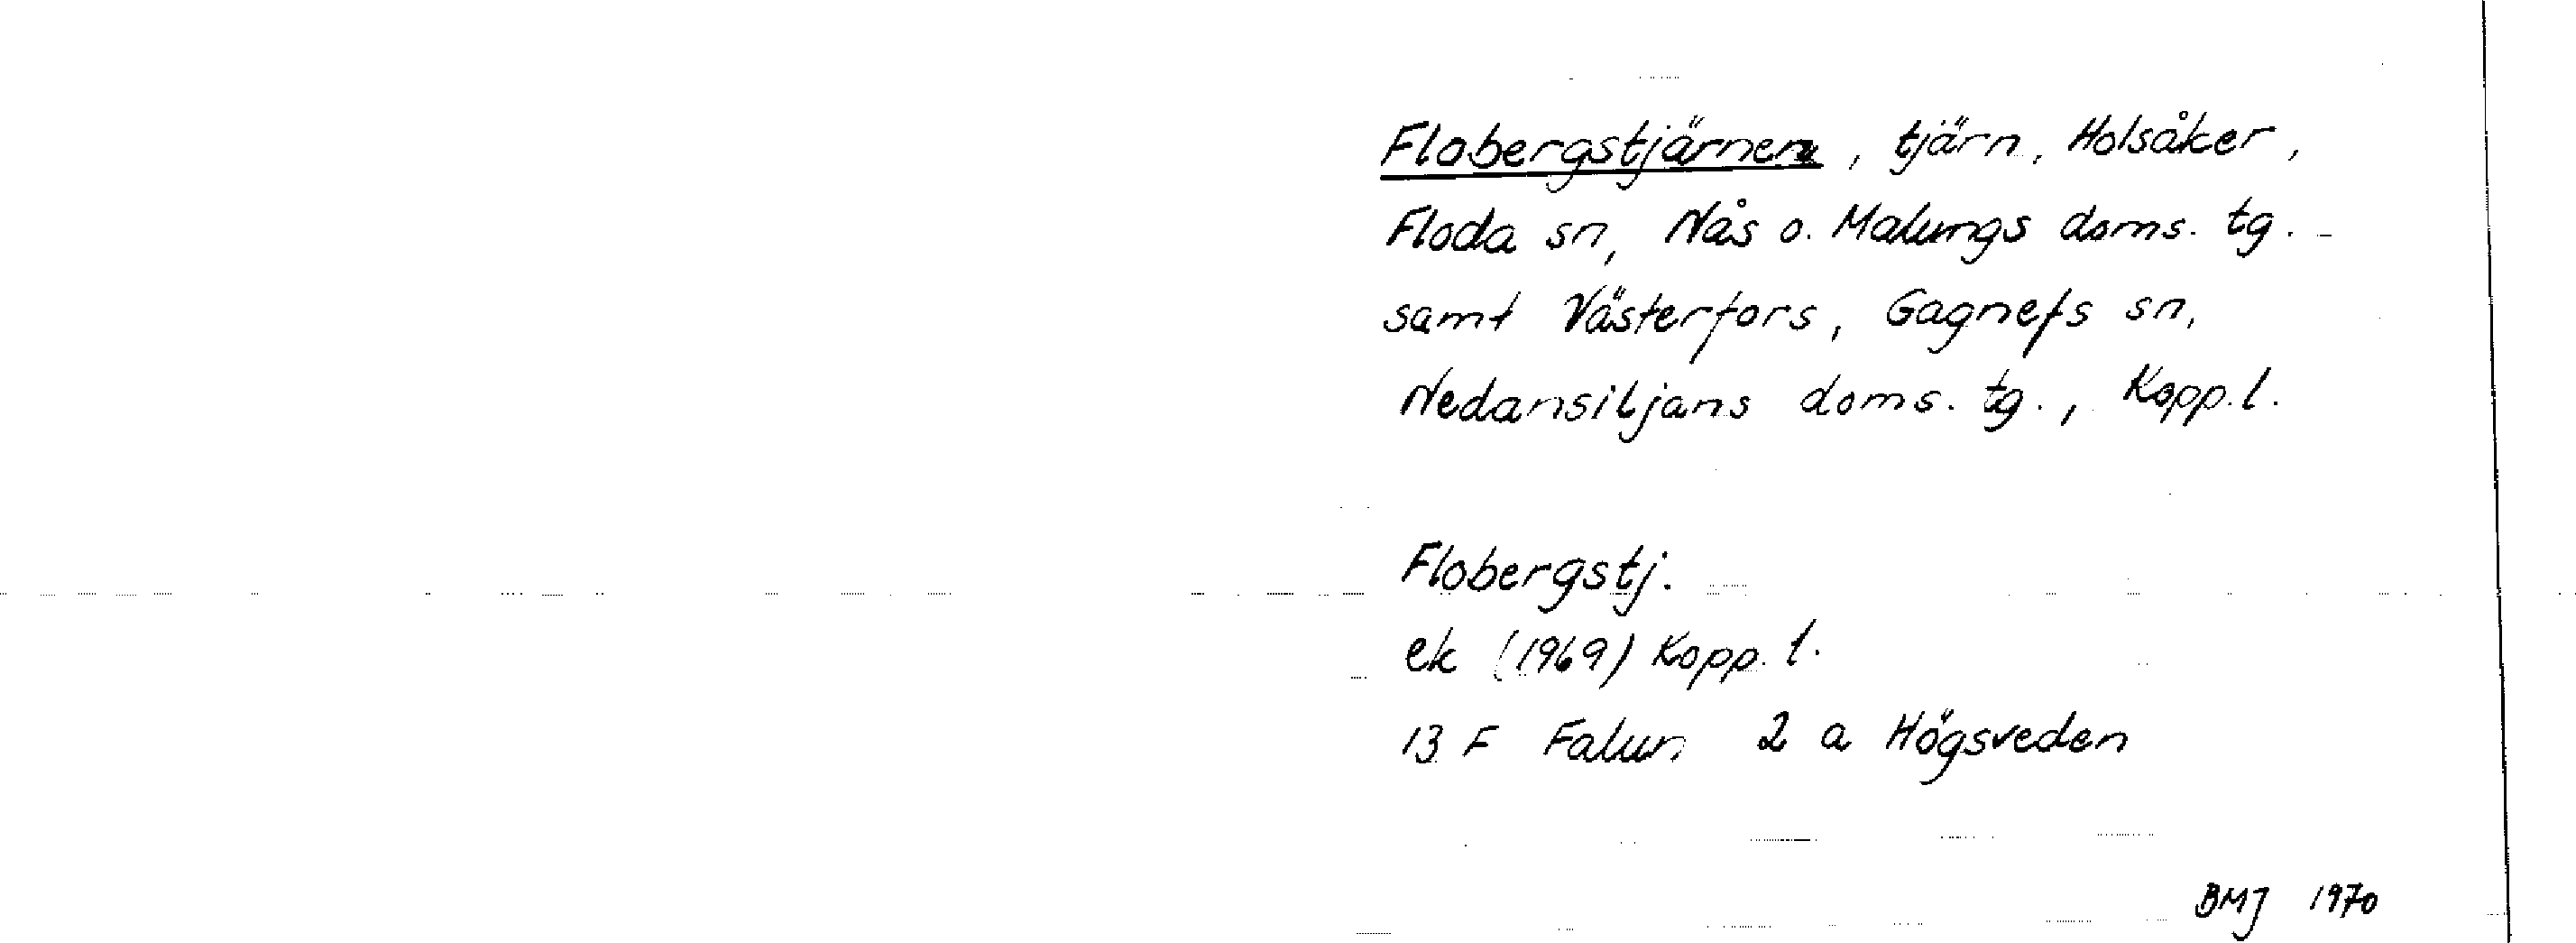 Flobergstjärnen, tjärn, Holsåker,
Floda sn, Nås o. Malungs doms. tg. -
samt Västerfors, Gagnefs sn,
Nedansiljans doms. tg., Kopp. l.
Flobergstj.
ek (1969) Kopp. l.
13 F Falun 2 a Högsveden
BMJ 1970